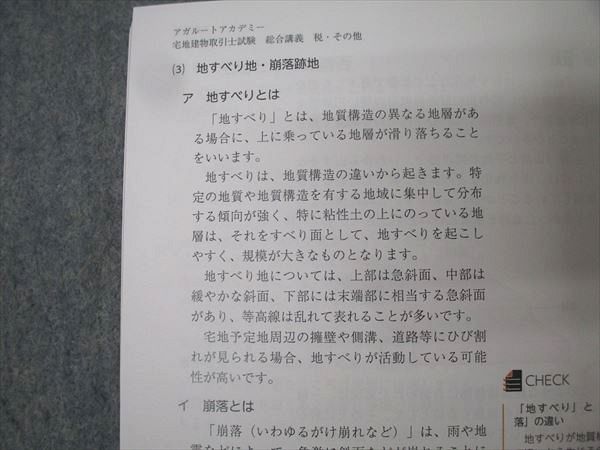 アガルートアカデミー
宅地建物取引士試験 総合講義 税・その他
⑶ 地すべり地・崩落跡地
ア 地すべりとは
「地すべり」とは、地質構造の異なる地層があ
る場合に、上に乗っている地層が滑り落ちること
をいいます。
地すべりは、地質構造の違いから起きます。特
定の地質や地質構造を有する地域に集中して分布
する傾向が強く、特に粘性土の上にのっている地
層は、それをすべり面として、地すべりを起こし
やすく、規模が大きなものとなります。
地すべり地については、上部は急斜面、中部は
緩やかな斜面、下部には末端部に相当する急斜面
があり、等高線は乱れて表れることが多いです。
宅地予定地周辺の擁壁や側溝、道路等にひび割
れが見られる場合、地すべりが活動している可能
性が高いです。
イ 崩落とは
「崩落（いわゆるがけ崩れなど）」は、雨や地
CHECK
「地すべり」と
落」の違い
地すべりが地質